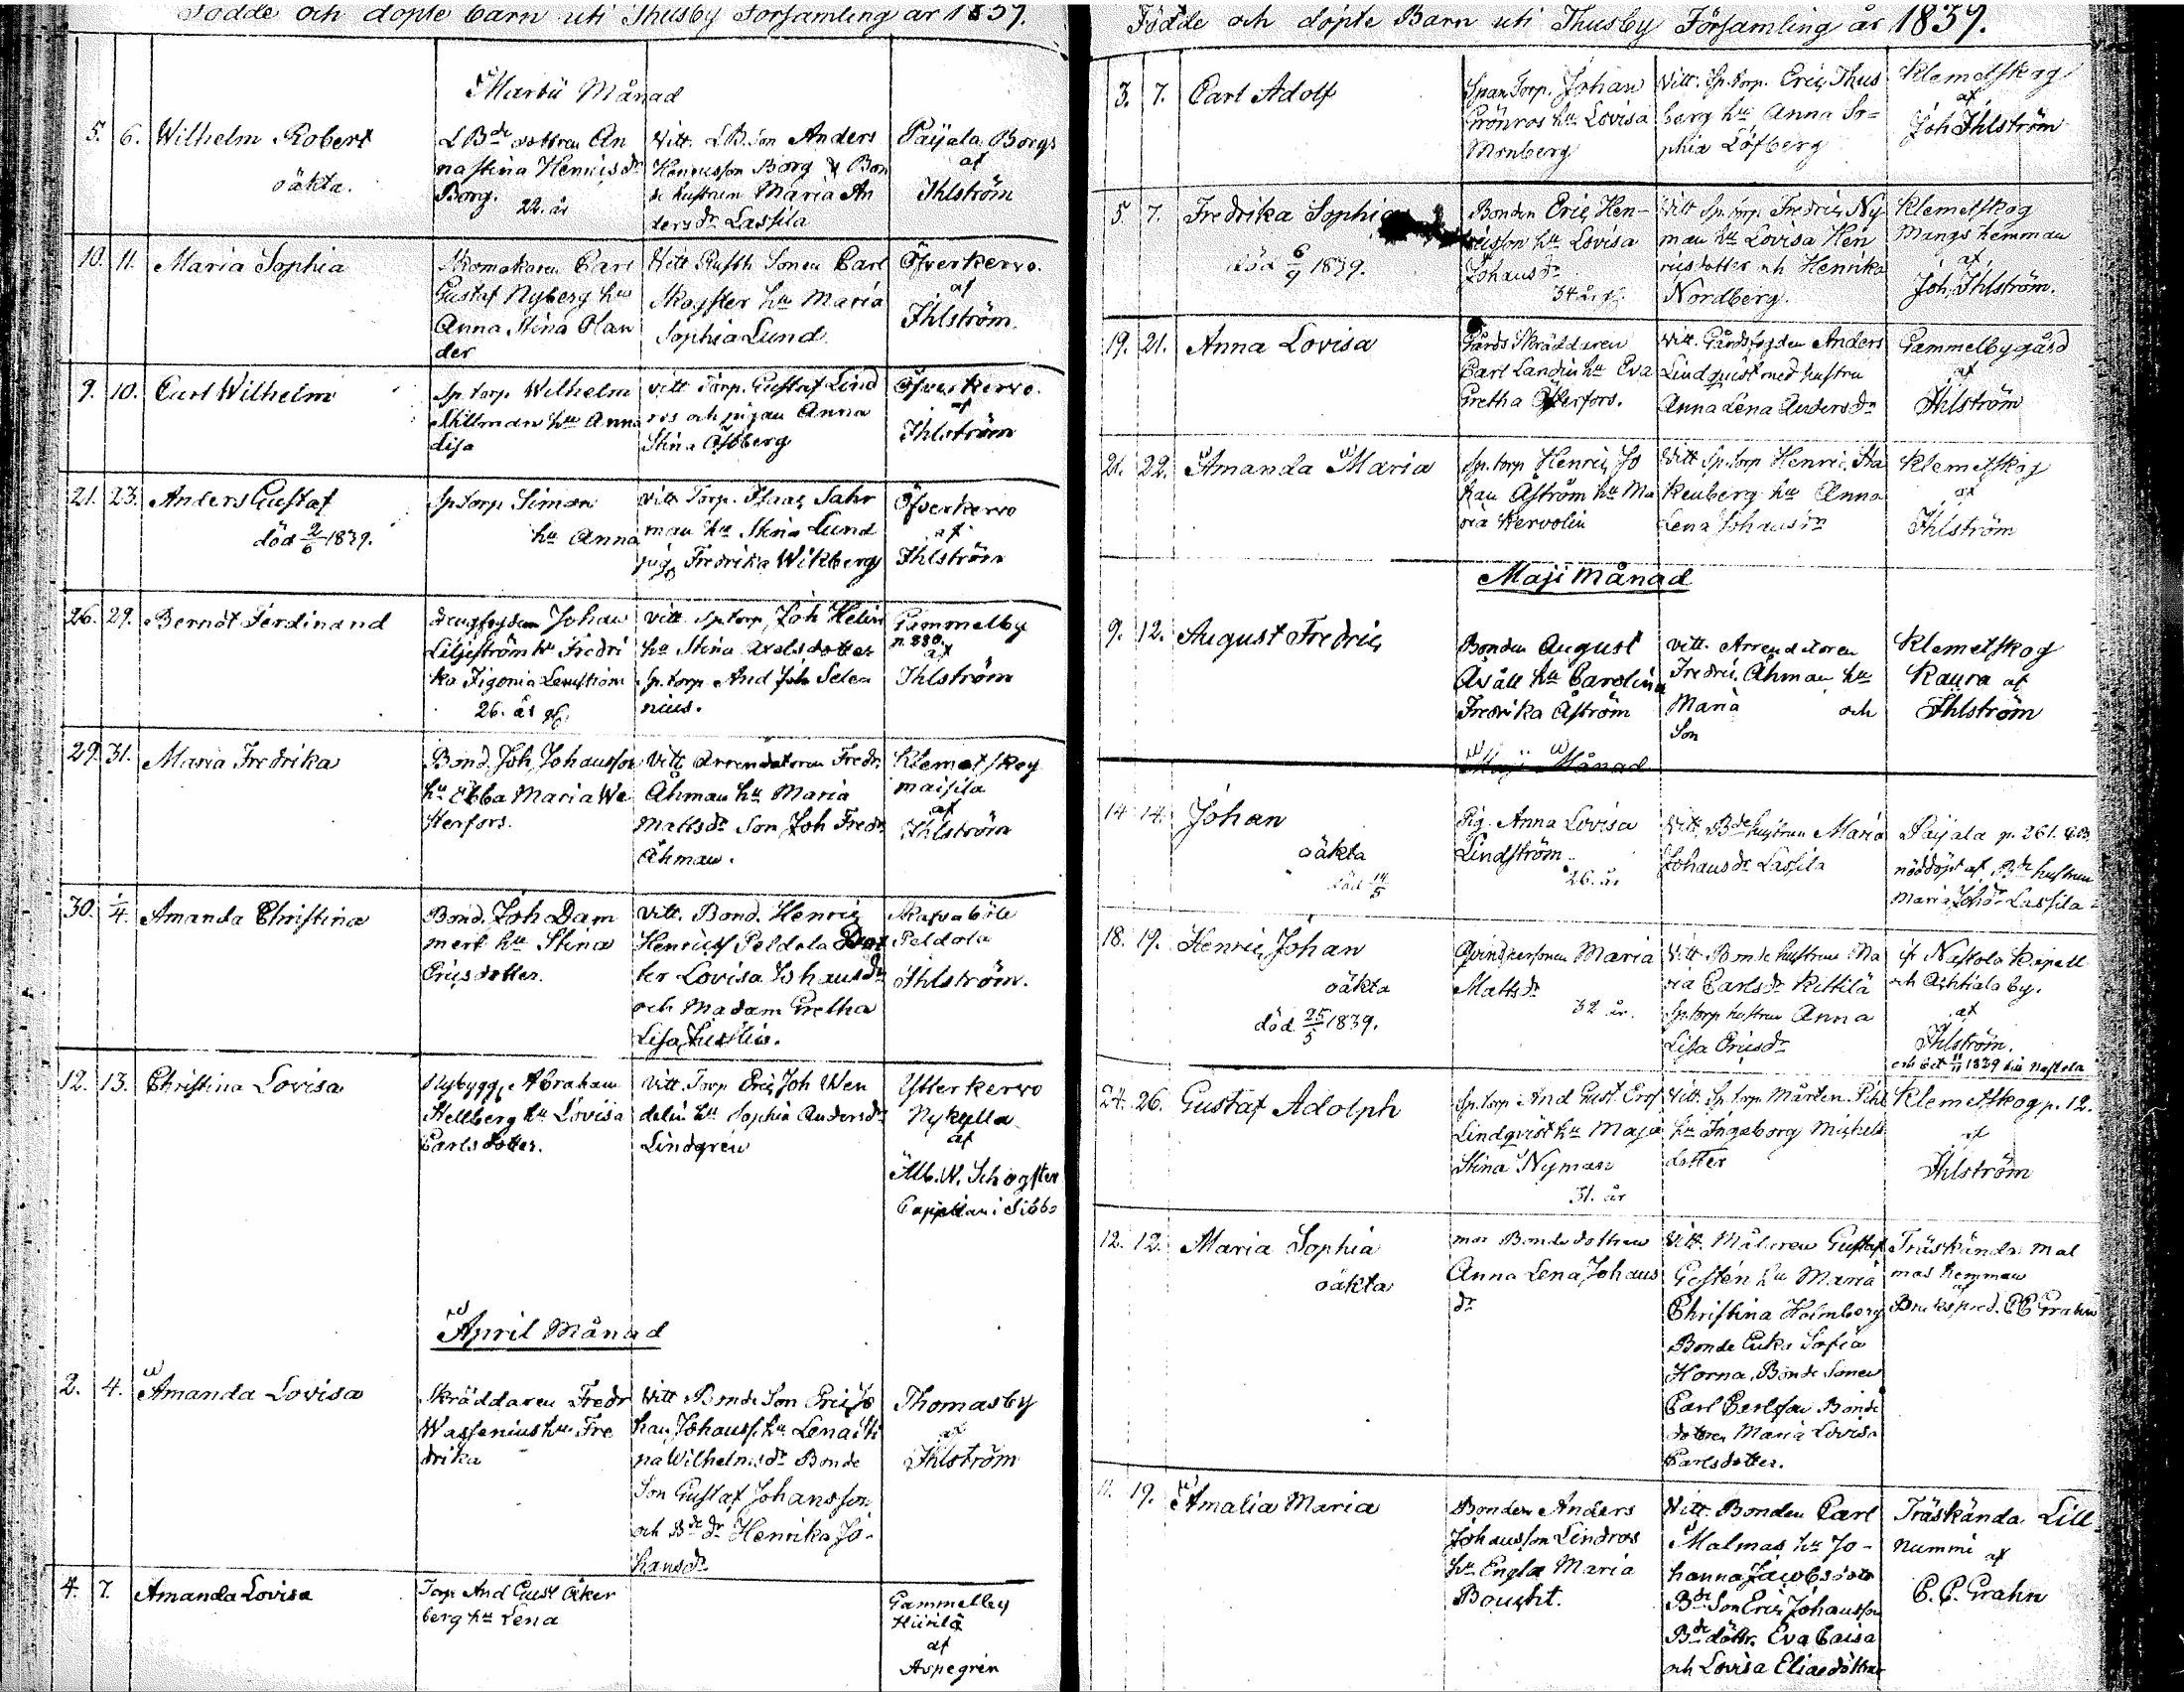 Födde och döpte barn uti Thusby Församling år 1839.
Martii Månad
5. 6. Wilhelm Robert
oäkta.
LBde dottren An
na Stina Henrics dr
Borg. 22. år
Vitt. LB. Son Anders
Henricsson Borg & Bon
de hustrun Maria An
ders dr Lassila
Paijala Borgs
af
Ihlström
10. 11. Maria Sophia
Skomakaren Carl
Gustaf Nyberg hu
Anna Stina Olan
der
Vitt Rusth Sonen Carl
Skogster hu Maria
Sophia Lund.
Öfverkervo.
af
Ihlström.
9. 10. Carl Wilhelm
Sp. torp Wilhelm
Ahlman hu Anna
Lisa
vitt Torp. Gustaf Lind
ros och pigan Anna
Stina Öfberg
Öfverkervo.
af
Ihlström
21. 23. Anders Gustaf
död 2/6 1839.
Sp torp Simon
hu Anna
vitt Torp. Isaac Sahr
man hu Stina Lund
pig. Fredrika Wikberg
Öfverkervo
af
Ihlström
26. 29. Berndt Ferdinand
drengfogden Johan
Liljeström hu Fredri
ka Figonia Lemström
26. år gl.
vitt. Sp. torp. Joh Helin
hu Stina Axelsdotter
Sp. torp And Joh Sele
nius.
Gammelby
p. 230.
af
Ihlström
29. 31. Maria Fredrika
Bond. Joh Johansson
hu Ebba Maria We
sterfors.
Vitt Arrendatoren Fredr.
Åhman hu Maria
Matts dr Son Joh Fredr.
Åhman.
Klemetskog
maisila
af
Ihlström
30. 1/4. Amanda Christina
Bond. Joh Dam
mert hu Stina
Ericsdotter.
Vitt. Bond. Henric
Henricss Peldola Dot
ter Lovisa Johans dr
och Madam Gretha
Lisa
Skafvaböle
Peldola
Ihlström.
12. 13. Christina Lovisa
Nybygg. Abraham
Stellberg hu Lovisa
Carlsdotter.
Vitt. Torp Eric Joh Wen
delin hu Sophia Anders dr
Lindgren
Ytterkervo
Nykylla
af
Alb. W. Schogster
Capellan i Sibbo
April Månad
2. 4. Amanda Lovisa
Skräddaren Fredr
Wassenius hu Fre
drika
Vitt Bonde Son Eric Jo
han Johanss. hu Lena Sti
na Wilhelms dr Bonde
Son Gustaf Johansson
och Bde dr Henrika Jo-
hans dr
Thomasby
af
Ihlström
4. 7. Amanda Lovisa
Torp And Gust Åker
berg hu Lena
Gammelby
Hiirilä
af
Aspegrén
Födde och döpte Barn uti Thusby Församling år 1839.
3. 7. Carl Adolf
Span Torp. Johan
Grönros hu Lovisa
Monberg
Vitt. Sp. torp. Eric Thus
berg hu Anna So=
phia Löfberg
Klemetskog
af
Joh Ihlström
5. 7. Fredrika Sophia
död 6/9 1839.
Bonden Eric Hen-
ricsson hu Lovisa
Johans dr
34 år gl.
Vitt Sp. torp Fredric Ny
man hu Lovisa Hen
ricsdotter och Henrika
Nordberg.
Klemetskog
Mangs hemman
af
Joh. Ihlström.
19. 21. Anna Lovisa
Gårds Skräddaren
Carl Landin hu Eva
Gretha Österfors.
Vitt. Gårdsfogden Anders
Lindqvist med hustru
Anna Lena Anders dr
Gammelbygård
af
Ihlström
21. 22. Amanda Maria
Sp. torp Henric Jo
han Åström hu Ma
ria Kervolin
Vitt Sp. torp Henric Sta
kenberg hu Anna
Lena Johans dr
Klemetskog
af
Ihlström
Maji månad
9. 12. August Fredric
Bonden August
Avall hu Carolina
Fredrika Åström
vitt. Arrendatoren
Fredric Åhman hu
Maria och
Son
Klemetskog
Kaura af
Ihlström
Maji Månad
14 14. Johan
oäkta
död 14/5
Pig. Anna Lovisa
Lindström.
26. år
Vitt. Bde hustrun Maria
Johans dr Lassila
Paijala p. 261.
nöddöpt af Bde hustrun
Maria Joh dr Lassila
18. 19. Henric Johan
oäkta
död 25/5 1839.
Qvinspersonen Maria
Matts dr
32 år.
Vitt Bonde hustrun Ma
ria Carls dr Kettilä
Sp. torp hustrun Anna
Lisa Erics dr
ifr Nastola Kapell
och Achtiala by.
af
Ihlström.
24. 26. Gustaf Adolph
Sp. torp And Gust. Erss
Lindqvist hu Maja
Stina Nyman
31. år
Vitt. Sp. torp. Mårten Pihl
hu Ingeborg Michels
dotter
Klemetskog p. 12.
af
Ihlström
12. 12. Maria Sophia
oäkta
mor Bonde dottren
Anna Lena Johans
dr
Vitt. Målaren Gustaf
Gestén hu Maria
Christina Holmberg
Bonde Enka Sofia
Horna, Bonde Sonen
Carl Carlsson Bonde
dottren Maria Lovisa
Carlsdotter.
Träskända Mal
mas hemman
af
Brukspred. C C Grahn
11. 19. Amalia Maria
Bonden Anders
Johansson Lindros
hu Engla Maria
Bousht.
Vitt. Bonden Carl
Malmas hu Jo-
hanna Jacobsdotr
Bde Son Eric Johansson
Bde döttr. Eva Caisa
och Lovisa Eliaedöttrar
Träskända Lill
nummi af
C. C. Grahn